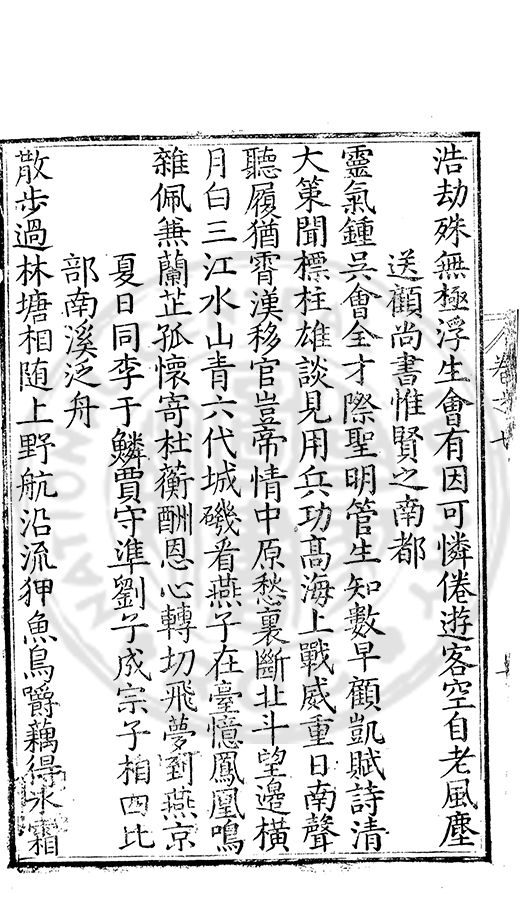 浩劫殊無極浮生會有因可憐倦遊客空自老風塵
送顧尚書惟賢之南都
靈氣鍾吳會全才際聖明管生知數早顧凱賦詩清
大策聞標柱雄談見用兵功髙海上戰威重日南聲
聽履猶霄漢移官豈帝情中原愁裏斷北斗望邉橫
月白三江水山青六代城磯看燕子在臺憶鳳凰鳴
雜佩兼蘭芷孤懷寄杜蘅酬恩心轉切飛夢到燕京
夏日同李于鱗賈守準劉子成宗子相四比
部南溪泛舟
散步過林塘相随上野航沿流狎魚鳥嚼藕得冰霜